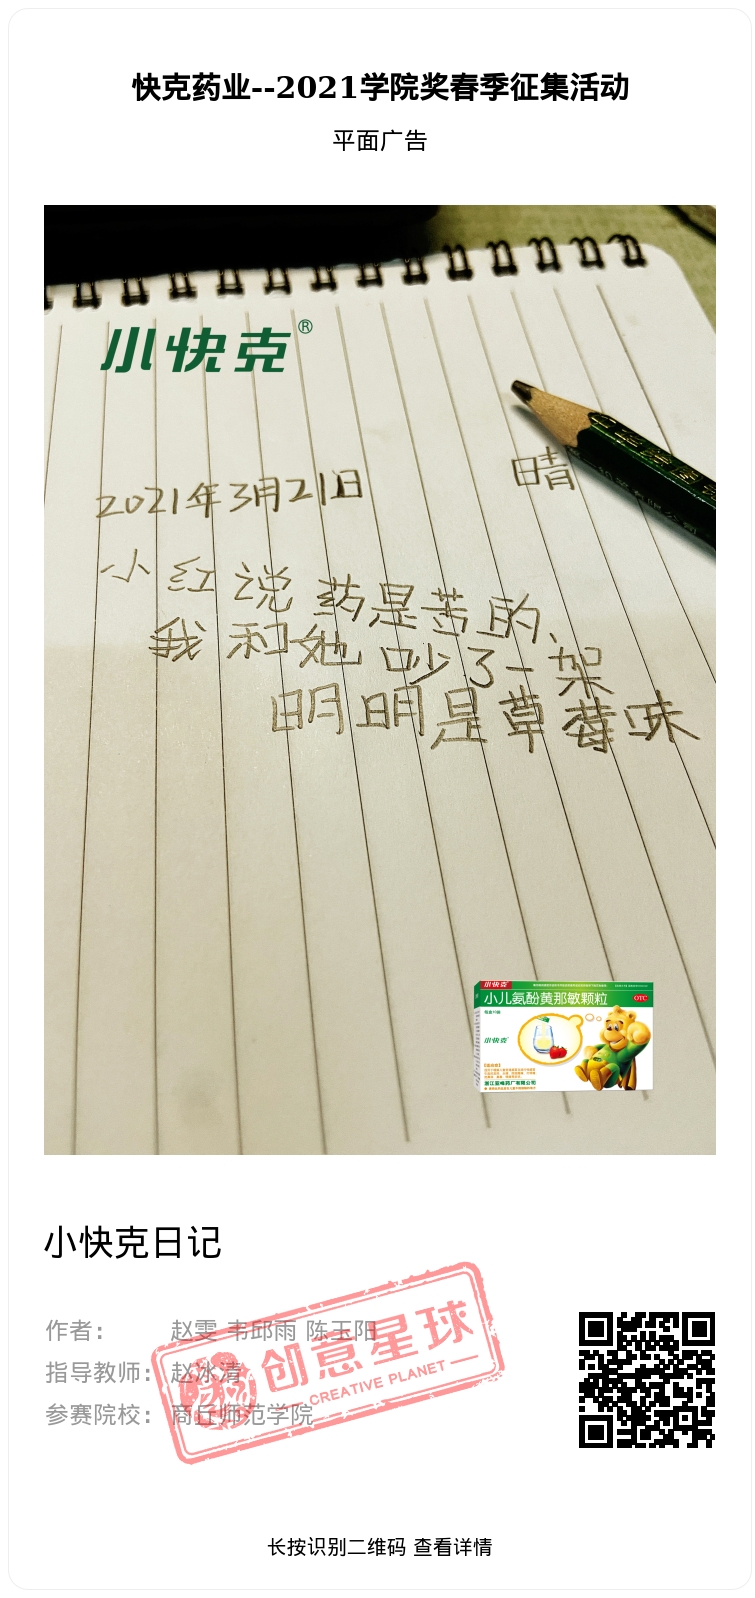 快克药业--2021学院奖春季征集活动
平面广告
小快克®
2021年3月21日 晴
小红说药是苦的、
我和她吵了一架
明明是草莓味
小快克
小儿氨酚黄那敏颗粒
OTC
小快克
浙江亚峰药厂有限公司
小快克日记
作者： 赵雯 韦邱雨 陈玉阳
指导教师： 赵冰清
参赛院校： 商丘师范学院
创意星球
CREATIVE PLANET
长按识别二维码 查看详情